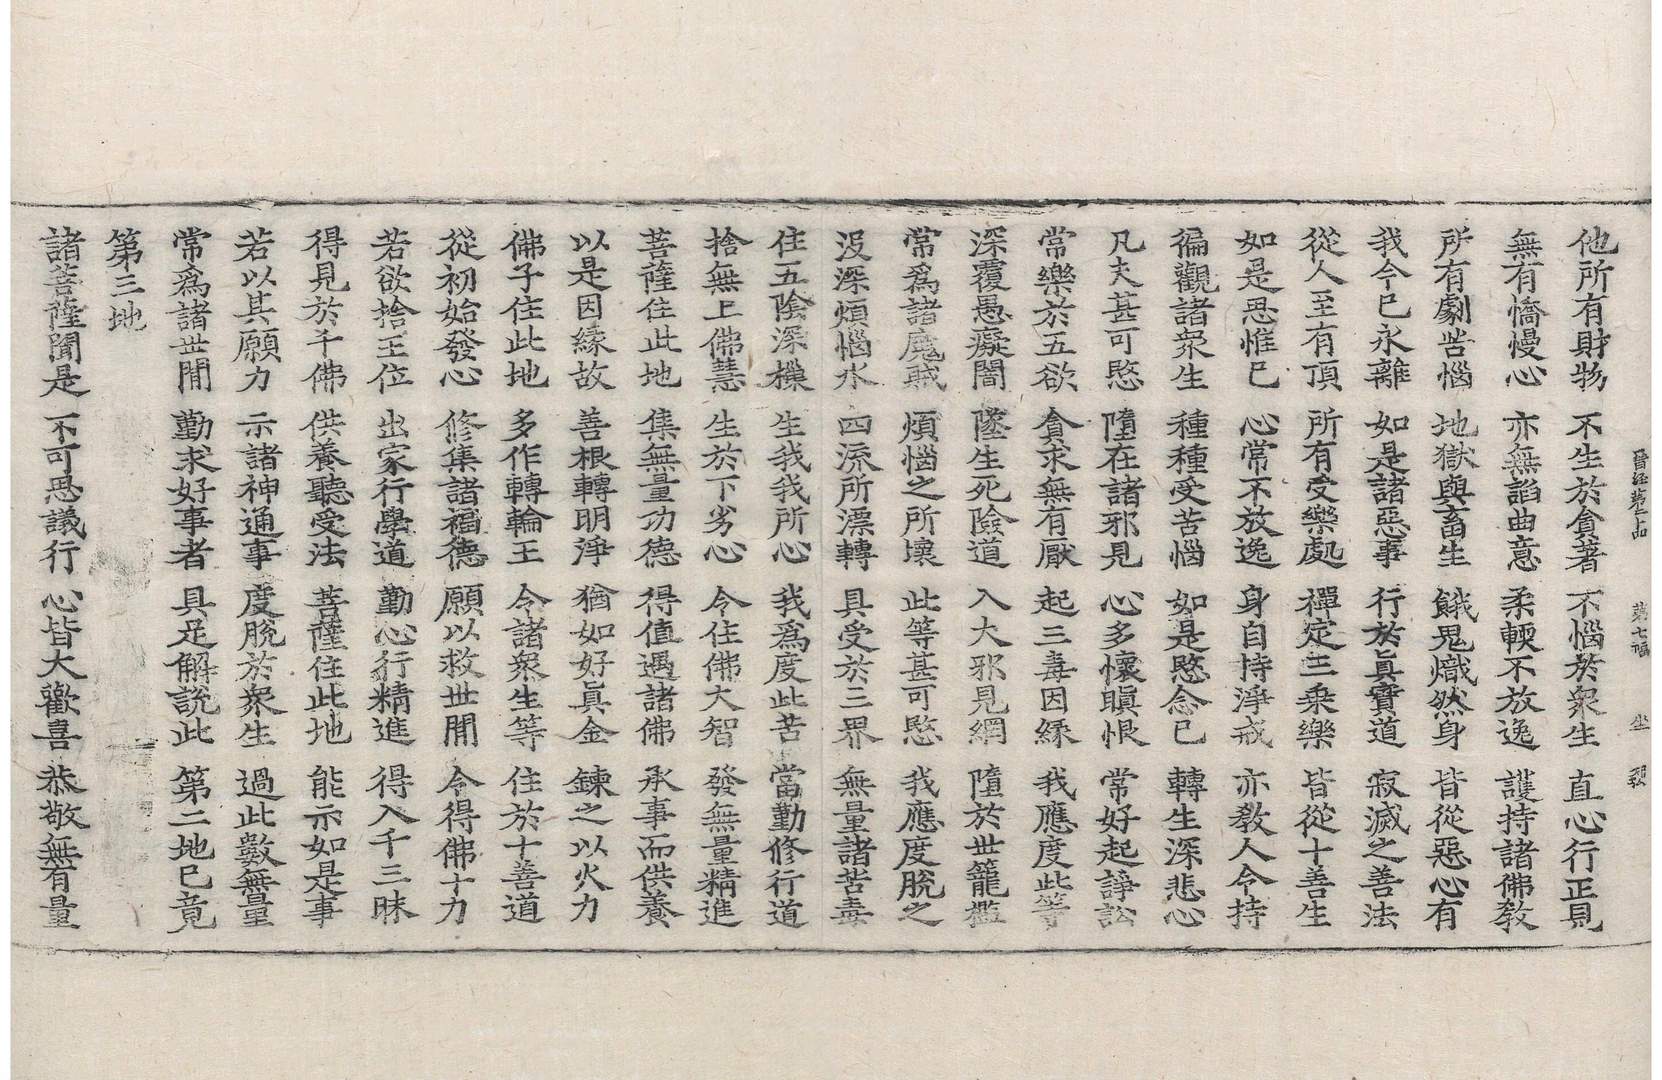 他所有財物 不生於貪著 不惱於衆生 直心行正見
無有憍慢心 亦無諂曲意 柔軟不放逸 護持諸佛教
所有劇苦惱 地獄與畜生 餓鬼熾然身 皆從惡心有
我今已永離 如是諸惡事 行於眞實道 寂滅之善法
從人至有頂 所有受樂處 禪定三乘樂 皆從十善生
如是思惟已 心常不放逸 身自持淨戒 亦教人令持
徧觀諸衆生 種種受苦惱 如是愍念已 轉生深悲心
凡夫甚可愍 墮在諸邪見 心多懷瞋恨 常好起諍訟
常樂於五欲 貪求無有厭 起三毒因緣 我應度此等
深覆愚癡闇 墜生死險道 入大邪見網 墮於世籠檻
常爲諸魔賊 煩惱之所壞 此等甚可愍 我應度脫之
沒深煩惱水 四流所漂轉 具受於三界 無量諸苦毒
住五陰深樔 生我我所心 我爲度此苦 當勤修行道
捨無上佛慧 生於下劣心 令住佛大智 發無量精進
菩薩住此地 集無量功德 得值遇諸佛 承事而供養
以是因緣故 善根轉明淨 猶如好眞金 鍊之以火力
佛子住此地 多作轉輪王 令諸衆生等 住於十善道
從初始發心 修集諸福德 願以救世間 令得佛十力
若欲捨王位 出家行學道 勤心行精進 得入千三昧
得見於千佛 供養聽受法 菩薩住此地 能示如是事
若以其願力 示諸神通事 度脫於衆生 過此數無量
常爲諸世間 勤求好事者 具足解說此 第二地已竟
第三地
諸菩薩聞是 不可思議行 心皆大歡喜 恭敬無有量